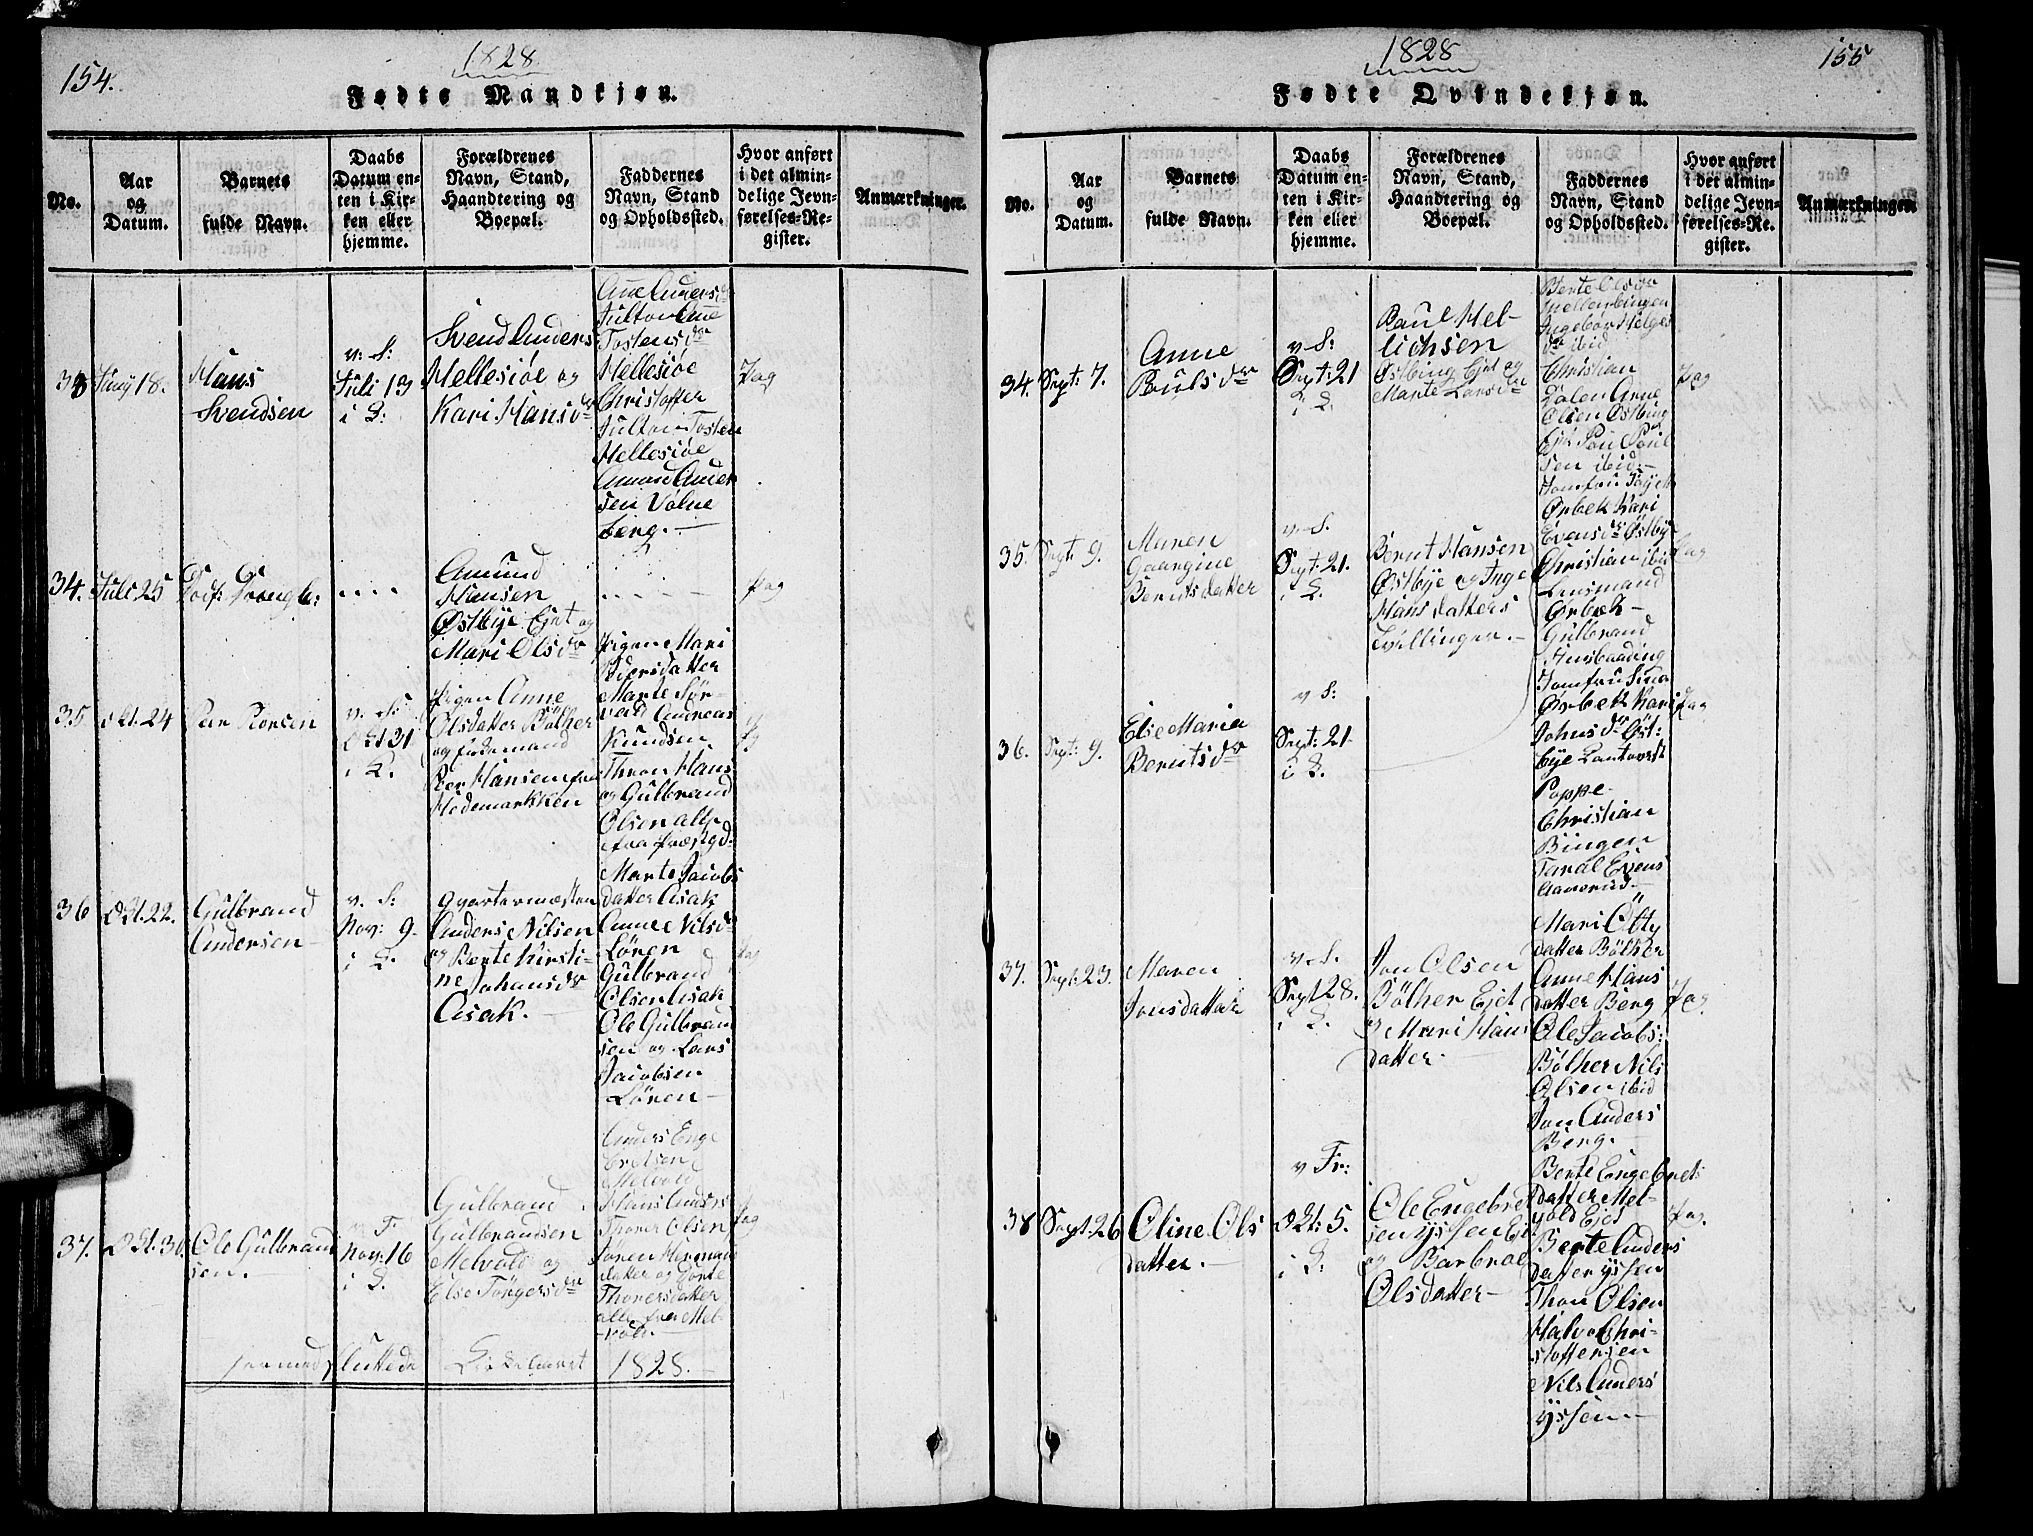 154.
1828
Fødte Mandkjøn.
No.
Aar
og
Datum.
Barnets
fulde Navn.
Daabs
Datum en-
ten i Kir-
ken eller
hjemme.
Forældrenes
Navn, Stand,
Haandtering og
Boepæl.
Faddernes
Navn, Stand
og Opholdssted.
Hvor anført
i det almin-
delige Jevn-
førelses-Re-
gister.
Anmærkninger.
33
Juny 18.
Hans
Svendsen
v: S:
Juli 13
i K:
Svend Anders
Hellesiøe og
Kari Hansdr
Ane Anersdr
Fulton Ane
Tostensdr
Hellesiøe
Christoffer
Fulton Tosten
Hellesiøe
Amund Ander
sen Volne
berg.
Pag
34.
Juli 25
....
Amund
Hansen
Østbye Ejet og
Mari Olsdr
Pag
35
Okt. 24
v. S:
Okt 31
i K.
Pigen Anne
Olsdatter Bölher
og
Peer Hansen fra
Hedemarkken
Pigen Mari
Marte Sör-
Andreas
Knudsen
Thron Hans
og Gulbrand
Olsen alle
fra Præstgd.
Pag
36
Okt. 22.
Gulbrand
Andersen
v. S:
Nov: 9
i K.
Qvartermesten
Anders Nilsen
og Berte Kirsti-
ne Johansdr
Aisak.
Marte Jacobs
datter Aisak
Anne Nilsdr
Lören
Gulbrand
Olsen Aisak
Ole Gulbran
sen og Lars
Jacobsen
Lören
Pag
37.
Okt. 30
Ole Gulbran
sen.
v F
Nov: 16
i K.
Gulbrand
Gulbrandsen
Melvold og
Else Törgersdr
Anders Enge
bretsen
Melvold
Hans Anders
Thorer Olsen
Joren Herman
datter og Dorte
Thorersdatter
alle fra Mel-
vold.
Pag
hermed sluttede Kirke aaret 1828.
1828
155
Fødte Qvindekjøn.
No.
Aar
og
Datum.
Barnets
fulde Navn.
Daabs
Datum en-
ten i Kir-
ken eller
hjemme.
Forældrenes
Navn, Stand,
Haandtering og
Boepæl.
Faddernes
Navn, Stand
og Opholdssted.
Hvor anført
i det almin-
delige Jevn-
førelses-Re-
gister.
Anmærkninger
34.
Sept: 7.
Anne
Poulsdr
v S:
Sept: 21
i K.
Paul Mel-
chiorsen
Østbye Ejet og
Marte Larsdr
Berte Olsdr
Mellembingen
Ingebor Helges
dr ibid
Christian
Dalen Arne
Olsen Østbye
Ejet Poul Poul
sen ibid.
Pag
35.
Sept: 9.
Maren
Gaorgine
Berntsdatter
v. S.
Sept: 21.
i K.
Bernt Hansen
Østbye og Inge
Hansdatters
Tvillinger.
Jomfru
Ørbek Kari
Evensdr Østbye
Christian ibid
Lensmand
Ørbek
Gulbrand
Pag
36.
Sept: 9.
Else Maria
Berntsdr
v S:
Sept: 21
i K.
Jomfru Lina
Ørbek Kari
Johnsdr Øst:
bye
Poppe
Christian
Bingen
Evens
Pag
37.
Sept. 23.
Maren
Jonsdatter
v. S.
Sept 28.
i K.
Jon Olsen
Bölher Ejet
og Mari Hans
datter
Mari
datter Bölher
Anne Hans
datter Berg
Ole Jacobs:
Bölher Nils
Olsen ibid
Jon Anders
Berg.
Pag
38
Sept. 26
Oline Ols
datter.
v Fr:
Okt: 5.
i K.
Ole Engebret
sen Yssen Ejet
og Barbroe
Olsdatter
Berte Engebret:
datter Mel-
vold Ejet
Berte Anders
datter Yssen
Thon Olsen
Halvor Chri-
stoffersen
Nils Anders
Yssen
Pag.